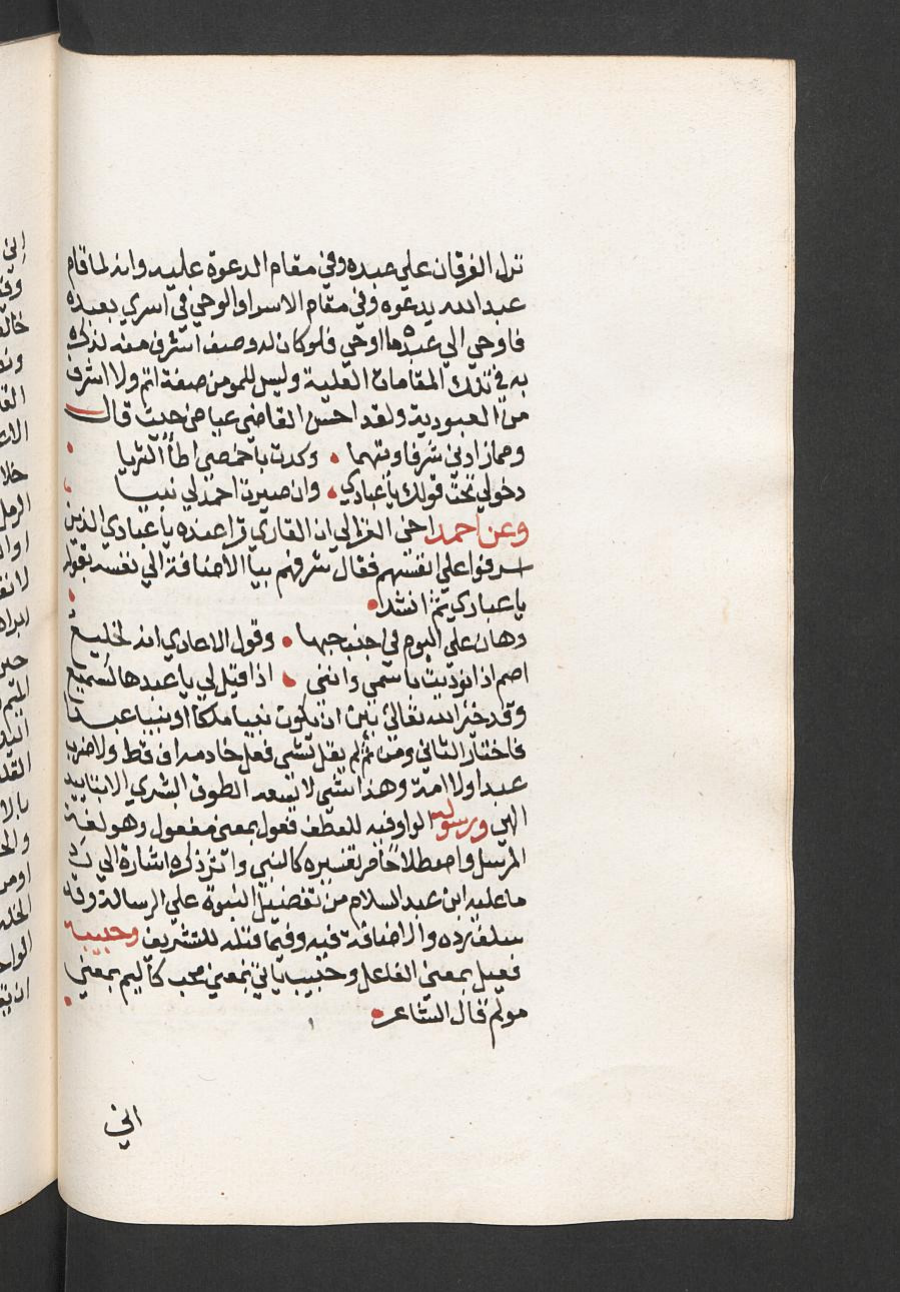 نزل الفرقان علي عبده وفي مقام الدعوة عليه وانه لما قام
عبد الله يدعوه وفي مقام الاسرا والوحي في اسري بعبده
فاوحي الي عبده ما اوحي فلو كان له وصف اشرف منه لذكره
به في تلك المقامات العلية وليس للمومن صفة اتم ولا اشرف
من العبودية ولقد احسن القاضي عياض حيث قال
ومما زادني شرفا وتيها • وكدت باخمصي اطأ الثريا
دخولي تحت قولك يا عبادي • وان صيرت احمد لي نبيا
وعن احمد اخي الغزالي ان القاري قرا عنده يا عبادي الذين
اسرفوا علي انفسهم فقال شرفهم بيا الاضافة الي نفسه بقوله
يا عبادي ثم انشد •
وهان علي اليوم في جنب حبها • وقول الاعادي انه لخليع
اصم اذا نوديت باسمي وانني • اذا قيل لي يا عبدها لسميع
وقد خير الله تعالي بين ان يكون نبيا ملكا او نبيا عبدا
فاختار الثاني ومن ثم لم يقل لشي فعل خادمه اف قط ولا ضرب
عبدا ولا امة وهذا شي لا يسعه الطوق البشري الا بتاييد
الهي ورسوله الواو فيه للعطف فعول بمعني مفعول وهو لغة
المرسل واصطلاحا مر تفسيره كالنبي واثر ذكره اشارة الي رد
ما عليه ابن عبد السلام من تفضيل النبوة علي الرسالة وقد
سلف رده والاضافة فيه وفيما قبله للتشريف وحبيبه
فعيل بمعني الفاعل وحبيب ياتي بمعني محب كأليم بمعني
مولم قال الشاعر •
اني